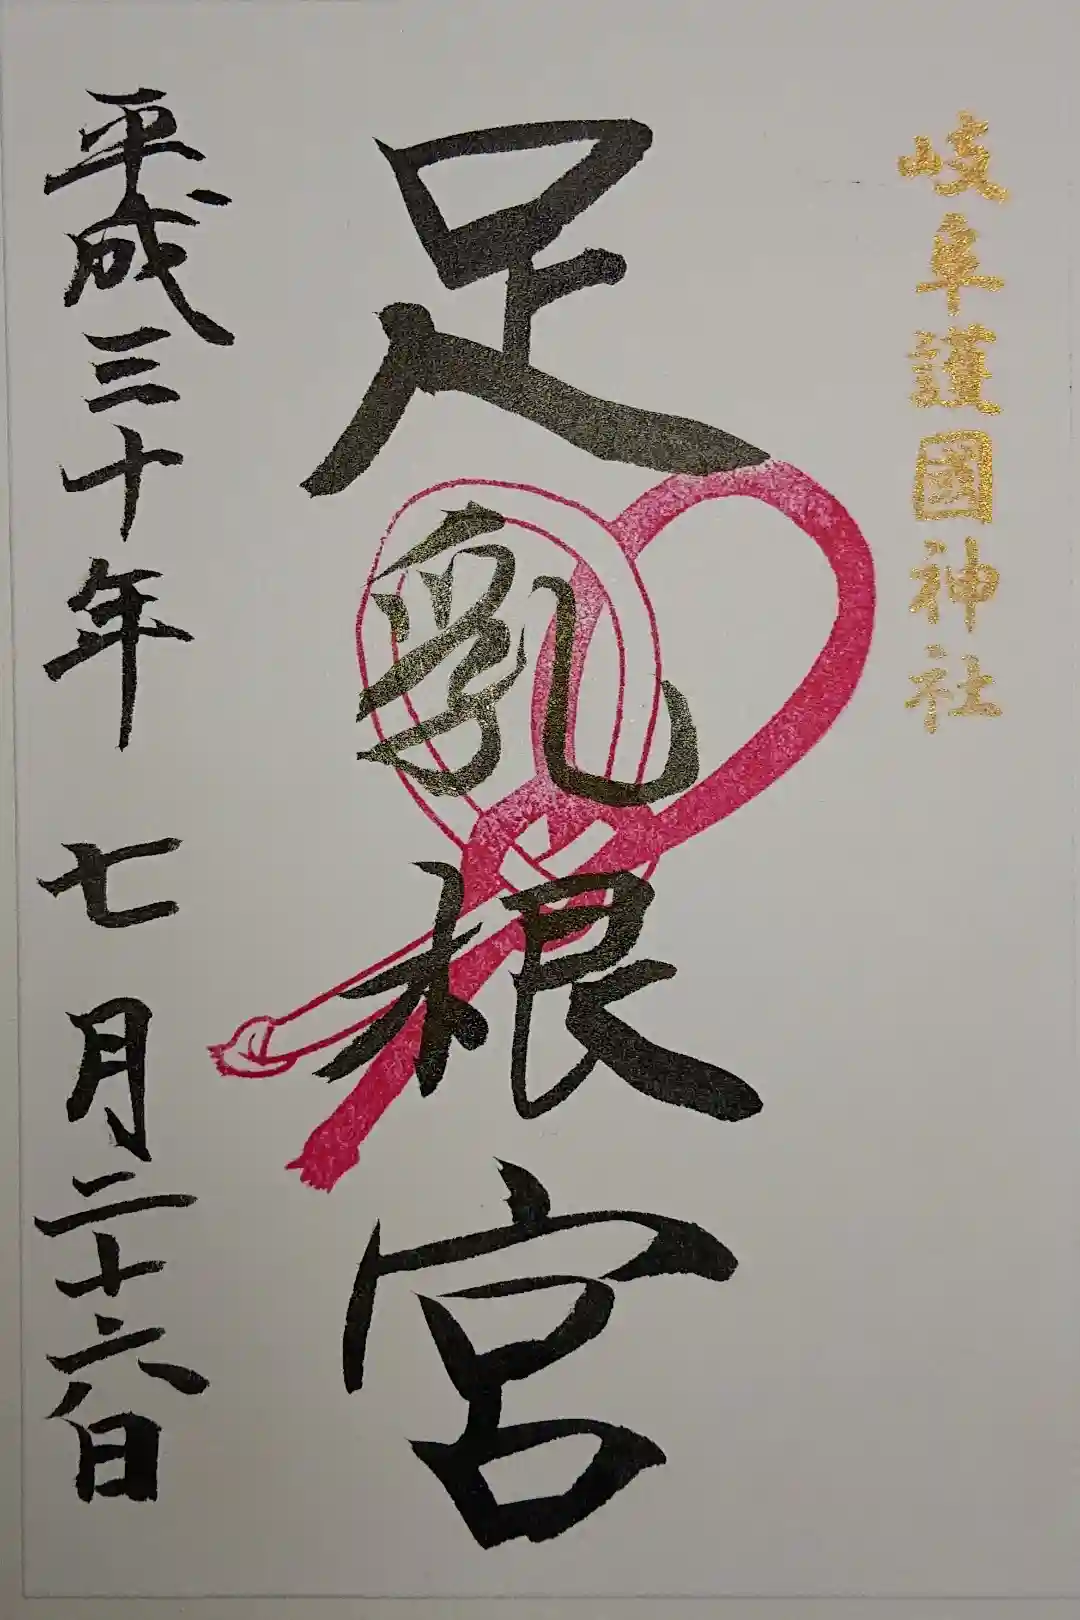 岐阜護國神社
足乳根宮
平成三十年 七月二十六日